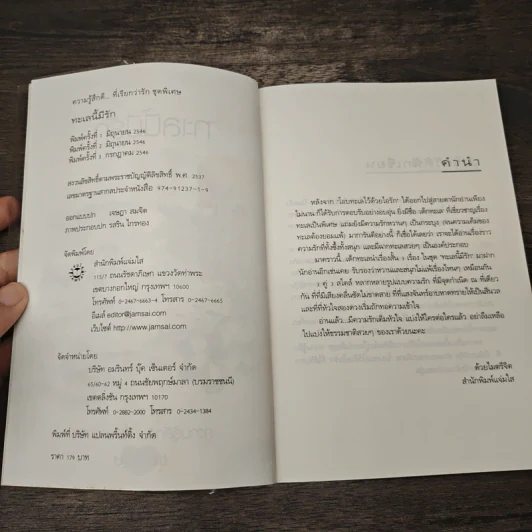 ความรู้สึกดี... ที่เรียกว่ารัก ชุดพิเศษ
ทะเลนี้มีรัก
พิมพ์ครั้งที่ 1 มิถุนายน 2546
พิมพ์ครั้งที่ 2 มิถุนายน 2546
พิมพ์ครั้งที่ 3 กรกฎาคม 2546
สงวนลิขสิทธิ์ตามพระราชบัญญัติลิขสิทธิ์ พ.ศ. 2537
เลขมาตรฐานสากลประจำหนังสือ 974-91237-1-9
ออกแบบปก เจษฎา สมจิต
ภาพประกอบปก รสริน ไกรทอง
จัดพิมพ์โดย
สำนักพิมพ์แจ่มใส
115/7 ถนนรัชดาภิเษก แขวงวัดท่าพระ
เขตบางกอกใหญ่ กรุงเทพฯ 10600
โทรศัพท์ 0-2467-6663-4 โทรสาร 0-2467-6665
อีเมล์ editor@jamsai.com
เว็บไซต์ http://www.jamsai.com
จัดจำหน่ายโดย
บริษัท อมรินทร์ บุ๊ค เซ็นเตอร์ จำกัด
65/60-62 หมู่ 4 ถนนชัยพฤกษ์มาลา (บรมราชชนนี)
เขตตลิ่งชัน กรุงเทพฯ 10170
โทรศัพท์ 0-2882-2000 โทรสาร 0-2434-1384
พิมพ์ที่ บริษัท แปลนพริ้นท์ติ้ง จำกัด
ราคา 179 บาท
คำนำ
หลังจาก 'โอบทะเลไว้ด้วยไอรัก' ได้ออกไปสู่สายตานักอ่านเพียง
ไม่นาน ก็ได้รับการตอบรับอย่างอบอุ่น ยิ่งมีชื่อ 'เด็กทะเล' ที่เชี่ยวชาญเรื่อง
ทะเลเป็นพิเศษ แถมยังมีความรักหวานๆ เป็นกระบุง (จนความเค็มของ
ทะเลต้องยอมแพ้) มาการันตีอย่างนี้ ก็เชื่อได้เลยว่า เราจะได้อ่านเรื่องราว
ความรักที่ทั้งซึ้งทั้งสนุก และมีฉากทะเลสวยๆ เป็นองค์ประกอบ
มาคราวนี้...เด็กทะเลนำเรื่องสั้น 3 เรื่อง ในชุด 'ทะเลนี้มีรัก' มาฝาก
นักอ่านอีกเช่นเคย รับรองว่าหวานและสนุกไม่แพ้เรื่องไหนๆ เหมือนกัน
3 คู่ 3 สไตล์ หลากหลายรูปแบบความรัก ที่มีจุดกำเนิด ณ ที่เดียว
กัน ที่ที่มีเสียงคลื่นซัดไม่ขาดสาย ที่ที่แสงจันทร์อาบหาดทรายให้เป็นสีนวล
และที่ที่หัวใจสองดวงเริ่มถักทอความเข้าใจ
อ่านแล้ว...มีความรักเต็มหัวใจ แบ่งให้ใครต่อใครแล้ว อย่าลืมเหลือ
ไปแบ่งให้ธรรมชาติสวยๆ ของเราด้วยนะคะ
ด้วยไมตรีจิต
สำนักพิมพ์แจ่มใส